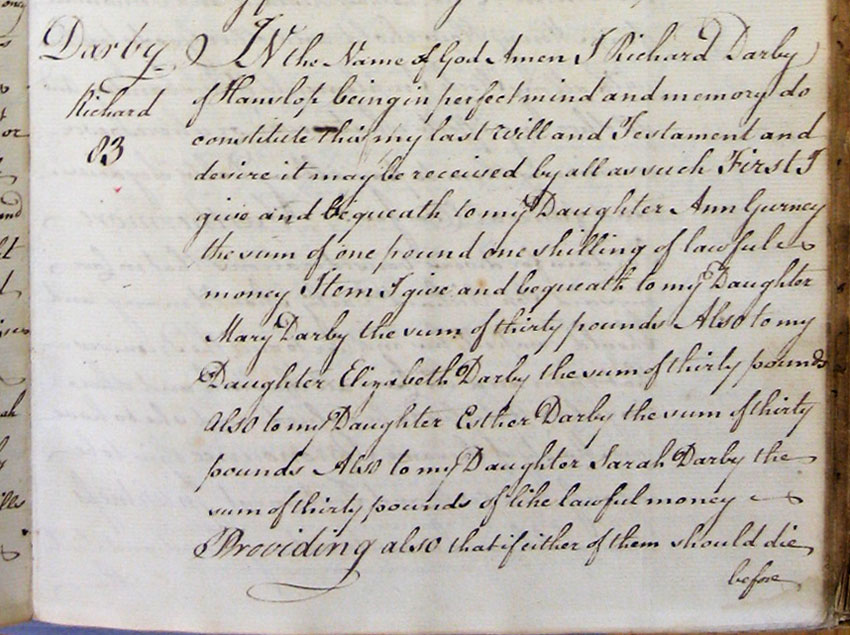 Darby
Richard
83
IN the Name of God Amen I Richard Darby
of Hanslop being in perfect mind and memory do
constitute this my last Will and Testament and
desire it may be received by all as such First I
give and bequeath to my Daughter Ann Gurney
the sum of one pound one shilling of lawful
money Item I give and bequeath to my Daughter
Mary Darby the sum of thirty pounds Also to my
Daughter Elizabeth Darby the sum of thirty pounds
also to my Daughter Esther Darby the sum of thirty
pounds Also to my Daughter Sarah Darby the
sum of thirty pounds of like lawful money
Providing also that if either of them should die
before